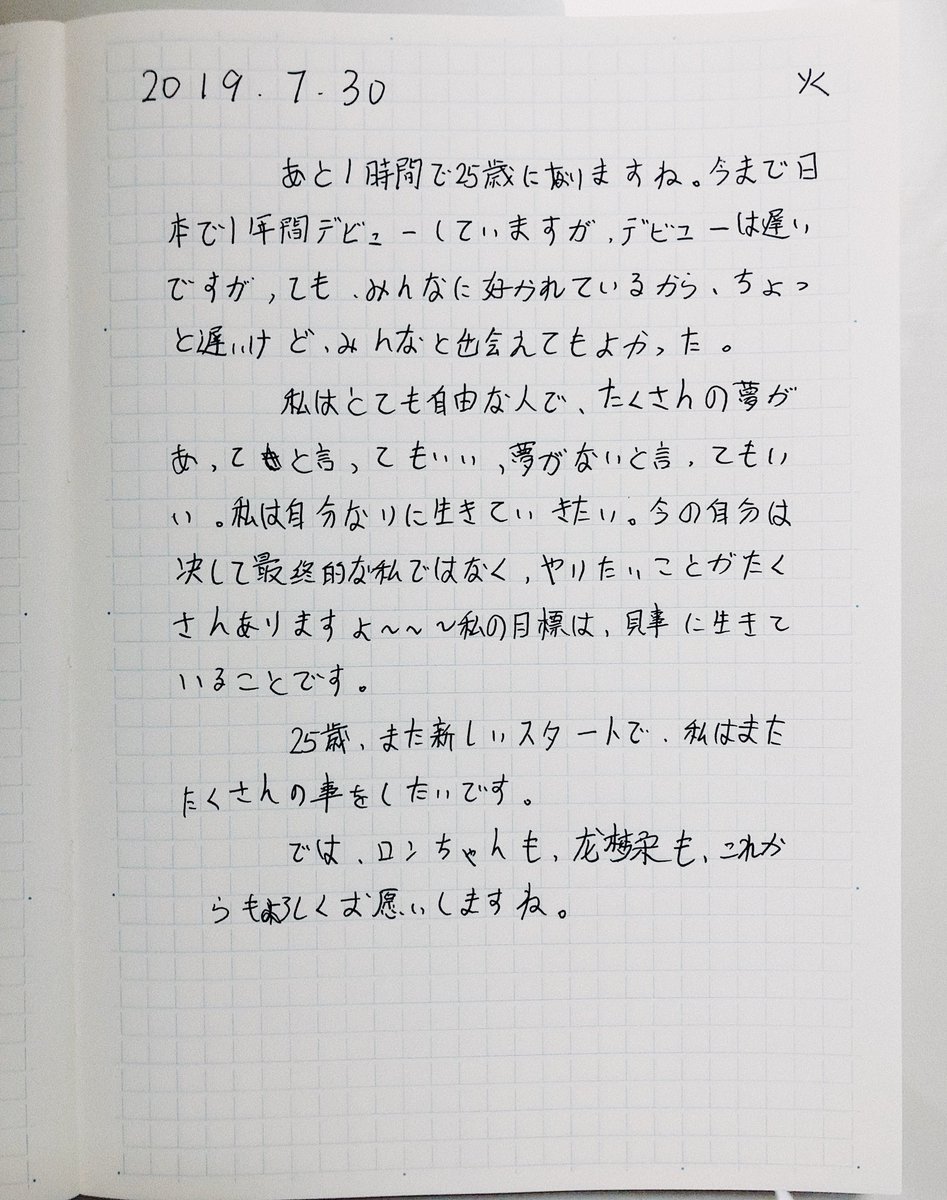 2019.7.30 火
あと1時間で25歳になりますね。今まで日
本で1年間デビューしていますが、デビューは遅い
ですが、ても、みんなに好かれているから、ちょっ
と遅いけど、みんなと出会えてもよかった。
私はとても自由な人で、たくさんの夢が
あってもと言ってもいい、夢がないと言ってもい
い。私は自分なりに生きていきたい。今の自分は
决して最終的な私ではなく、やりたいことがたく
さんありますよ～～～私の目標は、見事に生きて
いることです。
25歳、また新しいスタートで、私はまた
たくさんの事をしたいです。
では、ロンちゃんも、龙梦柔も、これか
らもよろしくお愿いしますね。